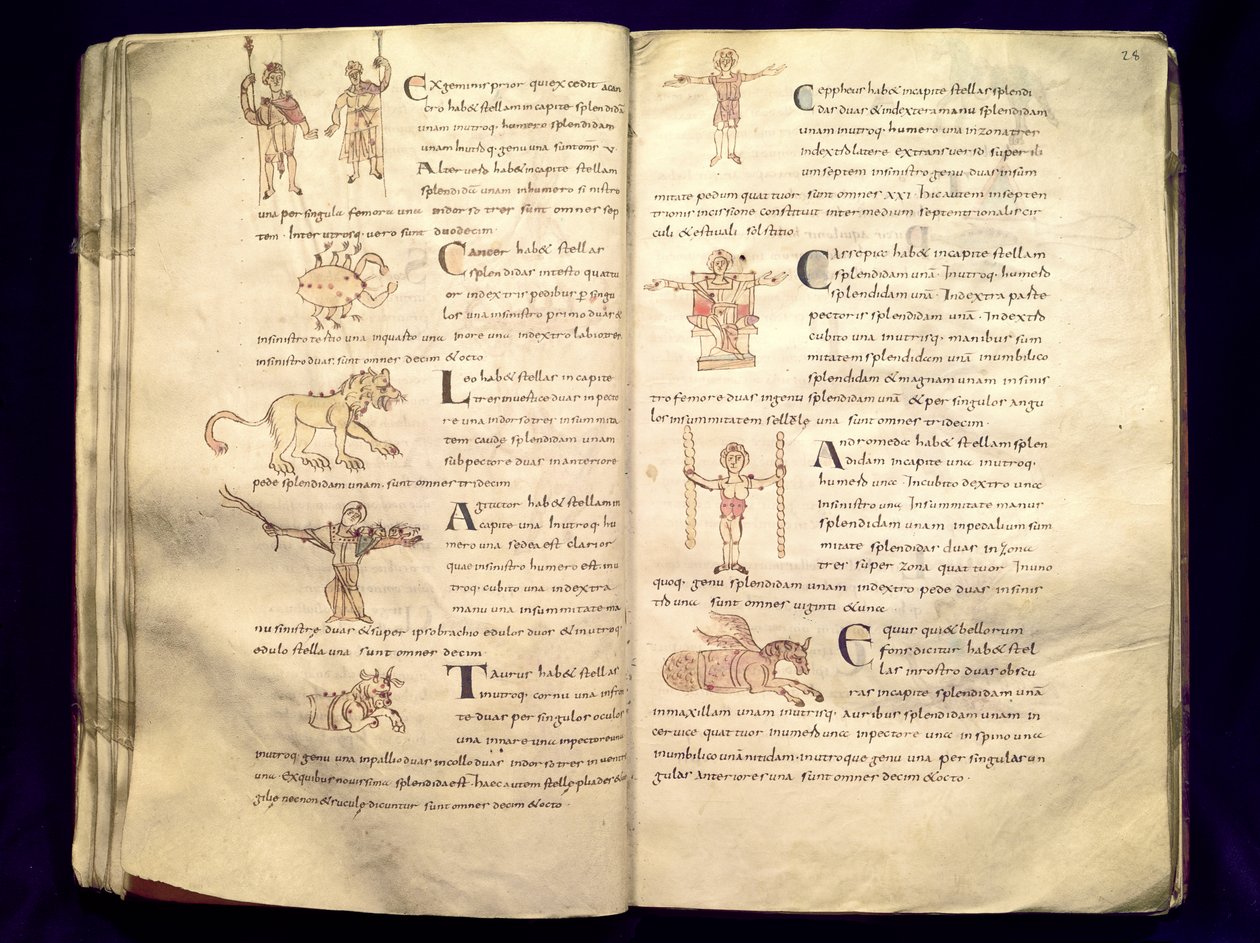 Ex geminis prior qui excedit a can
cro hab& stellam in capite splendidā
unam inutroq· humero splendidam
unam Inutroq· genu una sunt oms v·
Alter vero hab& incapite stellam
splendidā unam in humero sinistro
una per singula femora una indorso tres sunt omnes sep
tem· Inter utrosq· vero sunt duodecim·
Cancer hab& stellas
splendidas intesto quattu
or indextris pedibus p singu
los una insinistro primo duas &
insinistro testio una inquarto una inore una indextro labio tres
insinistro duas, sunt omnes decim &octo
Leo hab& stellas in capite
tres investice duas in pecto
re una indorso tres insummita
tem caude splendidam unam
sub pectore duas in anteriore
pede splendidam unam, sunt omnes tridecim
Agitator hab& stellam in
capite una Inutroq· hu
mero una sed ea est clarior
quae insinistro humero est· inu
troq· cubito una indextra
manu una insummitate ma
nu sinistre duas & super ipso brachio edulos duos & inutroq·
edulo stella una sunt omnes decim·
Taurus hab& stellas
inutroq· cornu una infron
te duas per singulos oculos
una innare una inpectore una
inutroq· genu una inpallio duas incollo duas indorso tres inventr
una· Exquibus novissima splendida est· haec autem stelle pliades &
gilie necnon & sucule dicuntur sunt omnes decim & octo·
28
Cepheus hab& incapite stellas splendi
das duas & indextera manu splendidam
unam inutroq· humero una in zona tres
indextro latere extransverso super ili
um septem insinistro genu duas insum
mitate pedum quattuor sunt omnes xxi· hic autem insepten
trionis incissione constituit inter medium septentrionalis cir
culi & estivali solstitio
Cassepia hab& incapite stellam
splendidam unā· Inutroq· humero
splendidam unā· Indextra parte
pectoris splendidam unā· Indextro
cubito una inutrisq· manibus sum
mitatem splendidam unā inumbilico
splendidam & magnam unam insinis
tro femore duas ingenu splendidam unā & per singulos angu
los insummitatem selle una sunt omnes tridecim·
Andromeda hab& stellam splen
didam incapite una inutroq·
humero una· Incubito dextro una
insinistro una Insummitate manus
splendidam unam inpedalium sum
mitate splendidas duas in zona
tres super zona quattuor Inuno
quoq· genu splendidam unam indextro pede duas insinis
tro una sunt omnes viginti & una
Equus qui & bellorum
fons dicitur hab& stel
las inrostro duas obscu
ras incapite splendidam unā
inmaxillam unam inutrisq· auribus splendidam unam in
cervice quattuor inumero una inpectore una inspino una
inumbilico unā nitidam· inutroque genu una per singulas un
gulas anteriores una sunt omnes decim &octo·